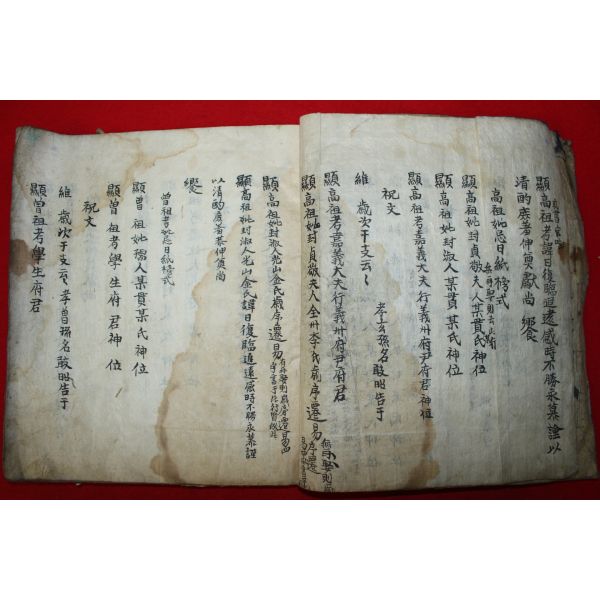 顯高祖考諱日復臨追遠感時不勝永慕謹以
清酌庶羞伸奠獻尚饗
高祖妣忌日紙榜式
顯高祖妣封貞敬夫人某貫氏神位
顯高祖妣封淑人某貫某氏神位
顯高祖考嘉義大夫行義州府尹府君神位
祝文
維 歲次干支云云 孝玄孫名敢昭告于
顯高祖考嘉義大夫行義州府尹府君
顯高祖妣封貞敬夫人全州李氏歲序遷易
顯高祖妣封淑人光山金氏歲序遷易
顯高祖妣封淑人光山金氏諱日復臨追遠感時不勝永慕謹
以清酌庶羞恭伸奠尚
饗
曾祖考妣忌日紙榜式
顯曾祖妣孺人某貫某氏神位
顯曾祖考學生府君神位
祝文
維 歲次干支云云 孝曾孫名敢昭告于
顯曾祖考學生府君